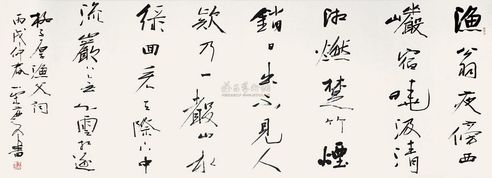 漁翁夜傍西
巖宿曉汲清
湘燃楚竹煙
銷日出不見人
欸乃一聲山水
綠回看天際下中
流巖上無心雲相逐
柳子厚漁父詞
丙戌仲春書